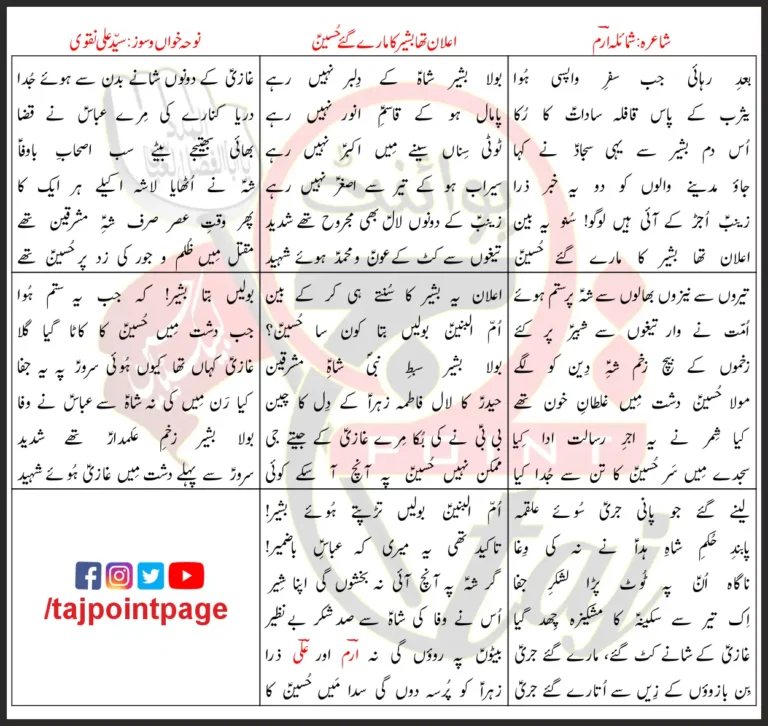 شاعرہ: شمائلہ ارمؔ
اعلان تھا بشیر کا مارے گئے حُسینؑ
نوحہ خواں و سوز: سیّد علی نقوی
بعدِ رہائی جب سفرِ واپسی ہُوا
یثرب کے پاس قافلہ ساداتؑ کا رُکا
اُس دم بشیر سے یہی سجادؑ نے کہا
جاؤ مدینے والوں کو دو یہ خبر ذرا
زینبؑ اُجڑ کے آئی ہیں لوگو! سُنو یہ بین
اعلان تھا بشیر کا مارے گئے حُسینؑ
بولا بشیر شاہؑ کے دِلبر نہیں رہے
پامال ہو کے قاسمِؑ انور نہیں رہے
ٹوٹی سِناں سینے میں اکبرؑ نہیں رہے
سیراب ہو کے تیر سے اصغرؑ نہیں رہے
زینبؑ کے دونوں لالؑ بھی مجروح تھے شدید
تیغوں سے کٹ کے عونؑ و محمدؑ ہوئے شہید
غازیؑ کے دونوں شانے بدن سے ہوئے جُدا
دریا کنارے کی مِرے عباسؑ نے قضا
بھائی بھتیجے بیٹے سب اصحابِ باوفاؑ
شہؑ نے اُٹھایا لاشہ اکیلے ہر ایک کا
پھر وقتِ عصر صرف شہِؑ مشرقین تھے
مقتل میں ظُلم و جور کی زد پر حُسینؑ تھے
تیروں سے نیزوں بھالوں سے شہؑ پر ستم ہوئے
اُمّت نے وار تیغوں سے شبیرؑ پر کئے
زخموں کے بیچ زخم شہِؑ دِین کو لگے
مولا حُسینؑ دشت میں غلطانِ خون تھے
کیا شِمر نے یہ اجرِ رسالت ادا کِیا
سجدے میں سَر حُسینؑ کا تن سے جُدا کیا
اعلان یہ بشیر کا سُنتے ہی کر کے بین
اُمّ البنینؑ بولیں بتا کون سا حُسینؑ؟
بولا بشیر سبطِ نبیؐ شاہِؑ مشرقین
حیدرؑ کا لال فاطمہ زہراؑ کے دِل کا چین
بی بیؑ نے کی بُکا مِرے غازیؑ کے جیتے جی
ممکن نہیں حُسینؑ پہ آنچ آ سکے کوئی
بولیں بتا بشیر! کہ جب یہ ستم ہُوا
جب دشت میں حُسینؑ کا کاٹا گیا گلا
غازیؑ کہاں تھا کیوں ہُوئی سرورؑ پہ یہ جفا
کیا رَن میں کی نہ شاہؑ سے عباسؑ نے وفا
بولا بشیر زخمِ علمدارؑ تھے شدید
سرورؑ سے پہلے دشت میں غازیؑ ہوئے شہید
لینے گئے جو پانی جریؑ سُوئے علقمہ
پابندِ حُکمِ شاہِ ہداؑ نے نہ کی وِغا
ناگاہ اُنؑ پہ ٹُوٹ پڑا لشکرِ جفا
اِک تیر سے سکینہؑ کا مشکیزہ چِھد گیا
غازیؑ کے شانے کٹ گئے، مارے گئے جریؑ
بِن بازوؤں کے زِیں سے اُتارے گئے جریؑ
اُمّ البنینؑ بولیں تڑپتے ہُوئے بشیر!
تاکید تھی یہ میری کہ عباسؑ باضمیر!
گر شہؑ پہ آنچ آئی نہ بخشوں گی اپنا شِیر
اُس نے وفا کی شاہؑ سے صد شکر بے نظیر
بیٹوںؑ پہ روؤں گی نہ ارمؔ اور علیؔ ذرا
زہراؑ کو پُرسہ دوں گی سدا مَیں حُسینؑ کا
/tajpointpage
پوائنٹ
POINT
taj